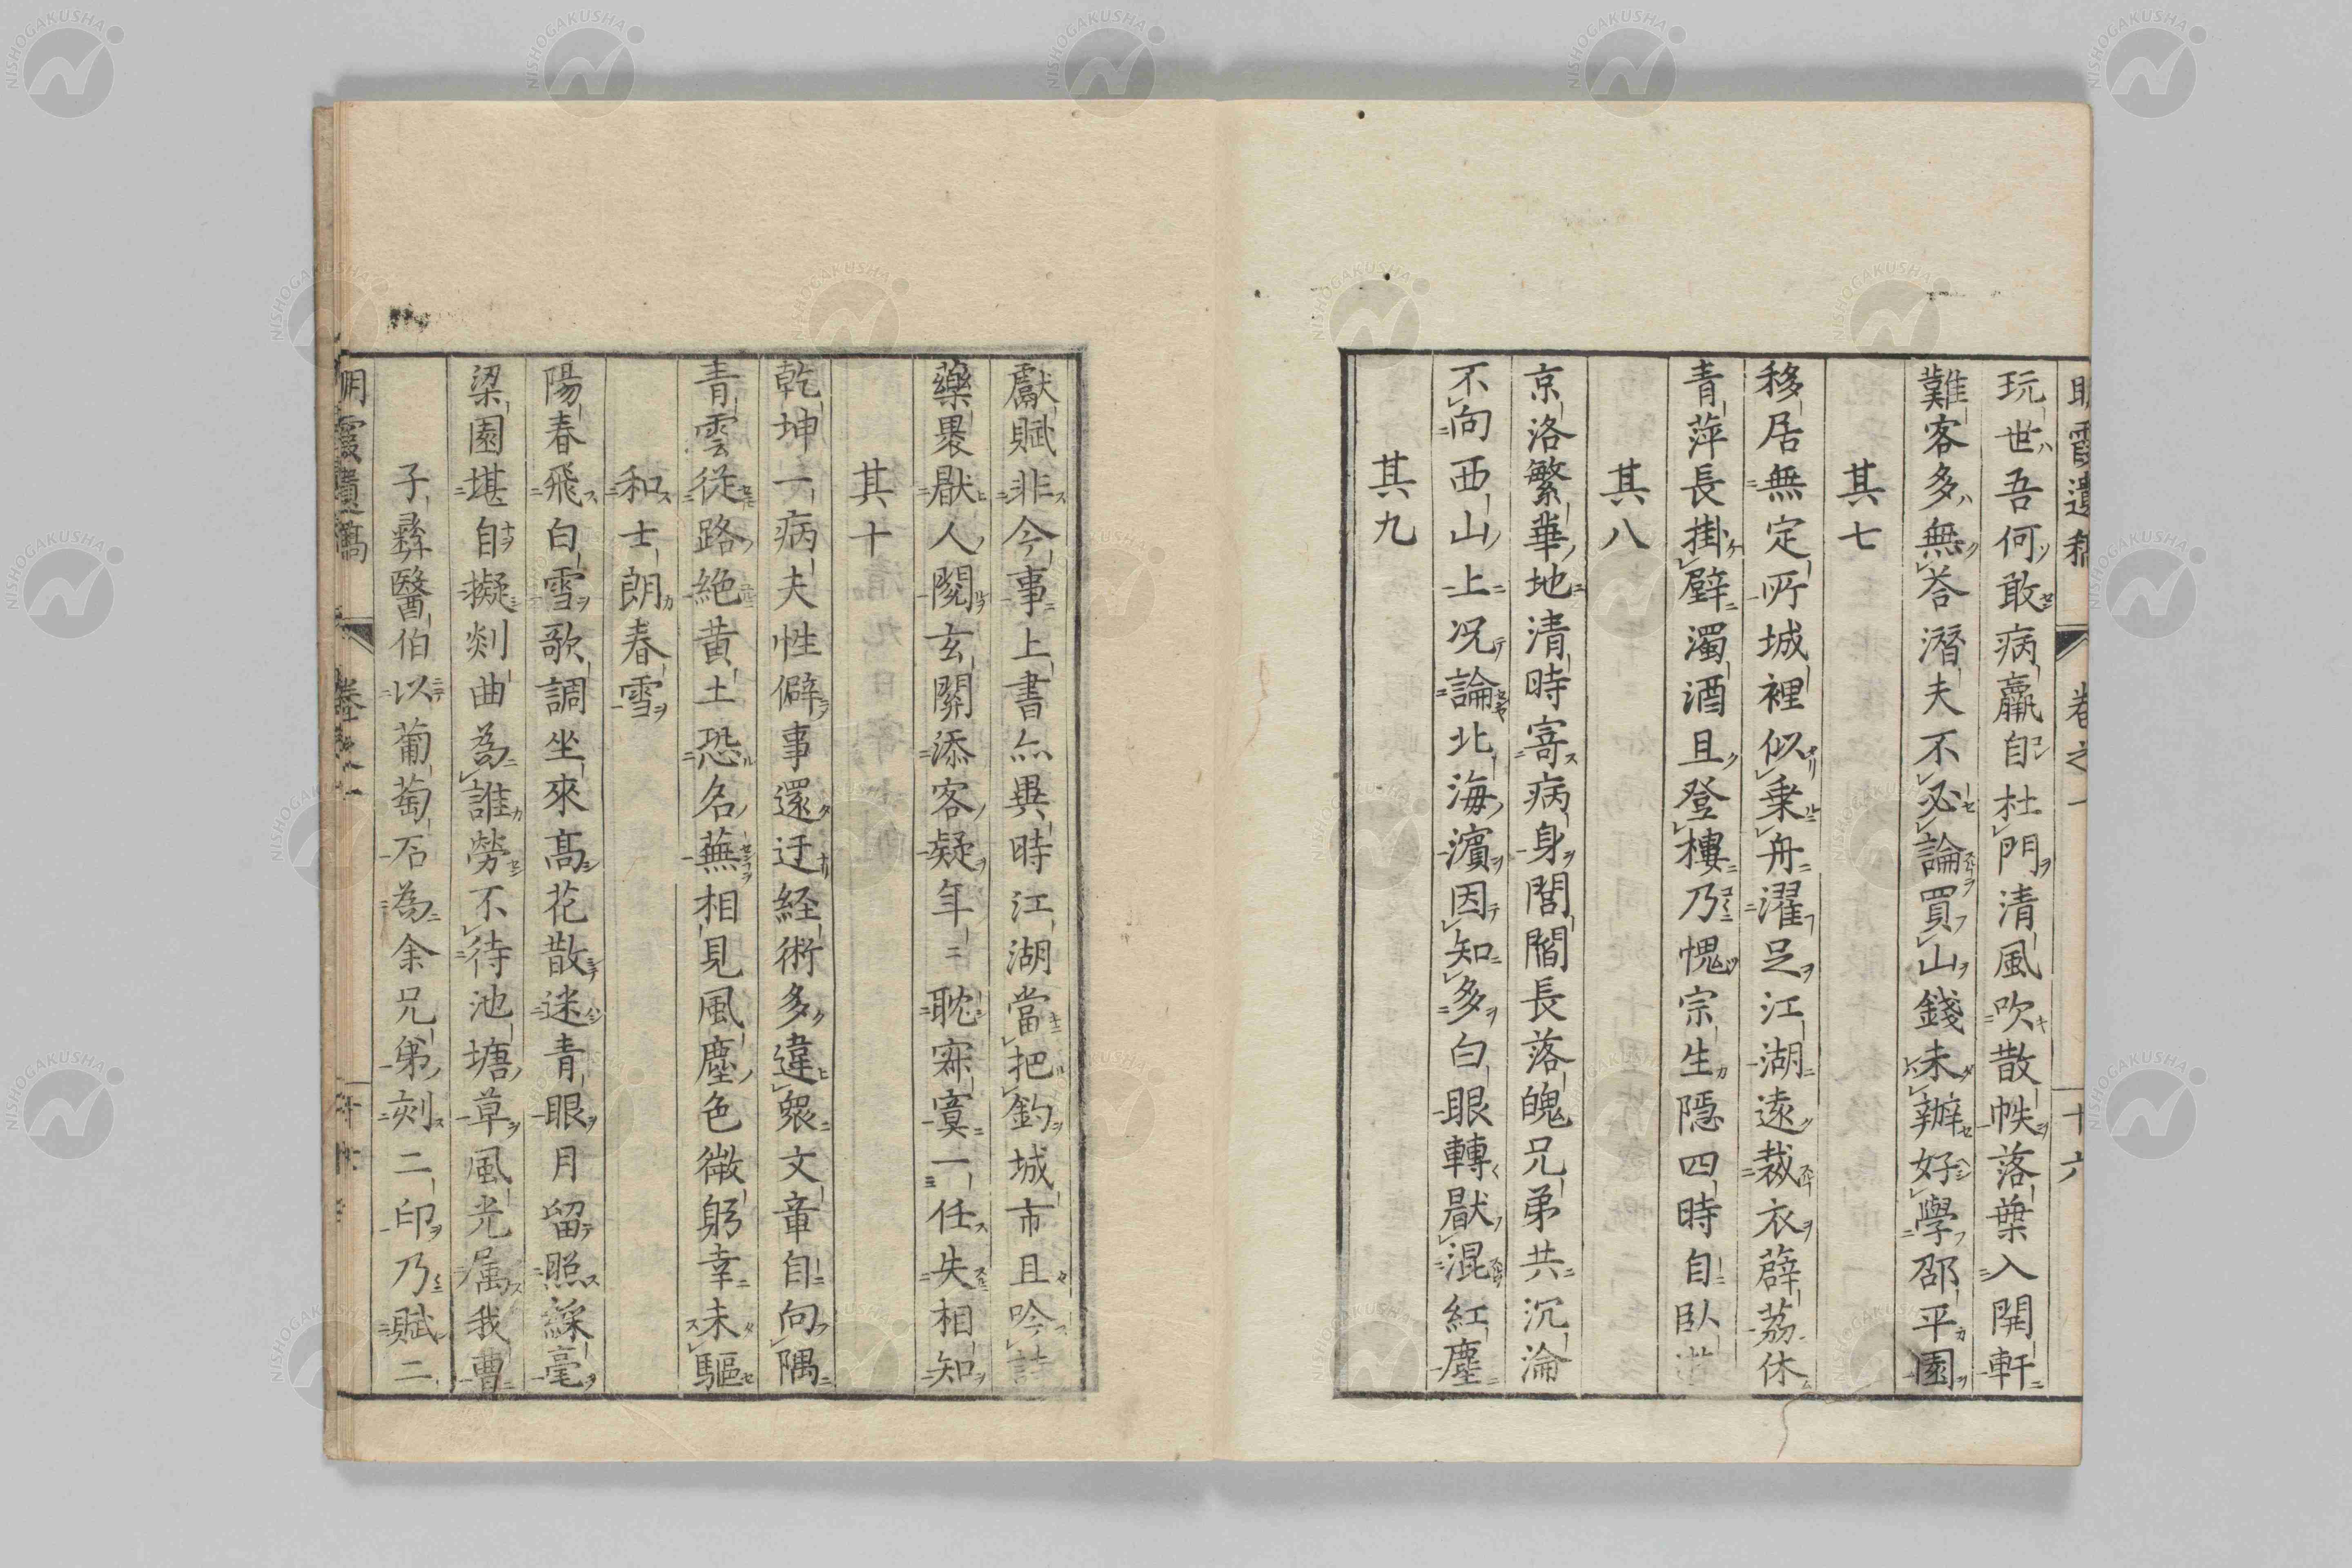 玩世吾何敢病羸自杜門清風吹散帙落葉入開軒
難客多無荅潛夫不必論買山錢未辦好學邵平園
其七
移居無定所城裡似乗舟濯足江湖遠裁衣薜荔休
青萍長掛壁濁酒且登樓乃愧宗生隠四時自臥
其八
京洛繁華地清時寄病身閭閻長落魄兄弟共沉淪
不向西山上况論北海濵因知多白眼轉厭混紅塵
其九
獻賦非今事上書亦異時江湖當把釣城市且吟詩
藥褁厭人閱玄關添客疑年二耽寂寞一任失相知
其十
乾坤一病夫性僻事還迂経術多違衆文章自向隅
青雲従路絶黄土恐名蕪相見風塵色微躬幸未驅
和士朗春雪
陽春飛白雪歌調坐來髙花散迷青眼月留照綵毫
梁園堪自擬剡曲為誰勞不待池塘草風光属我曹
子彛醫伯以葡萄石為余兄弟刻二印乃賦二
明霞遺稿 卷之一 十六
NISHOGAKUSHA